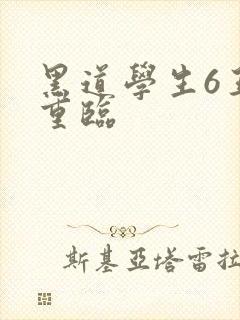 黑道學生6王
重臨
斯基亞塔雷拉